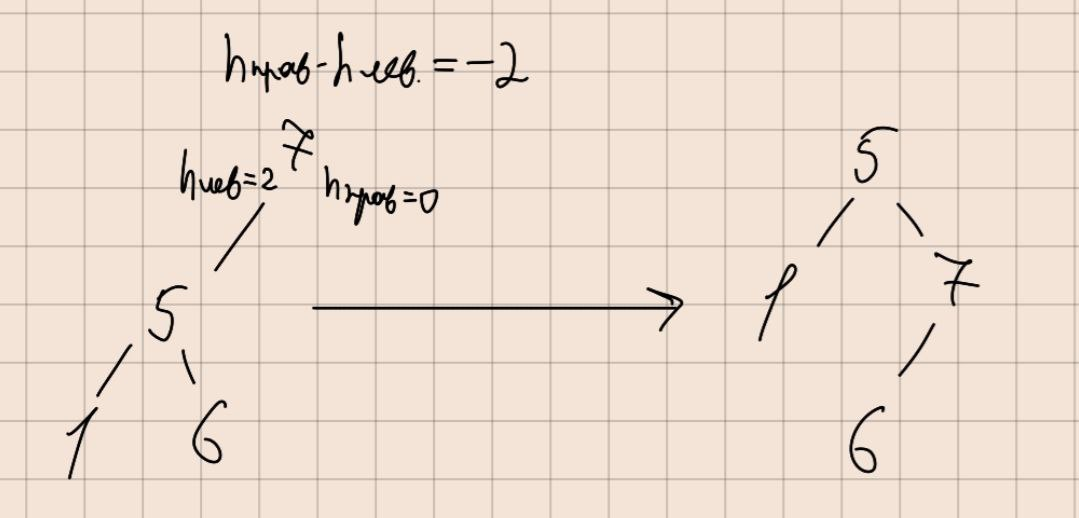 hправ-hлев. = -2
7
hлев=2 hправ=0
5
1 6
5
1 7
6